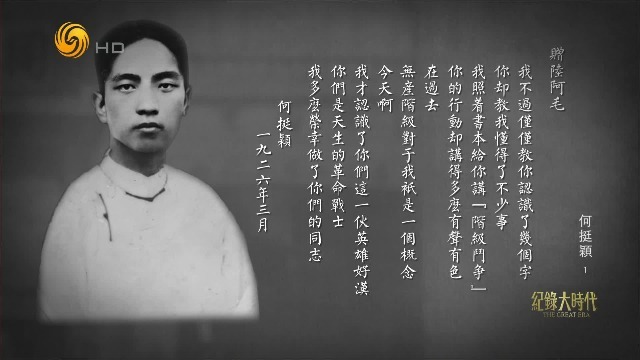 HD
贈陸阿毛
何挺穎
我不過僅僅教你認識了幾個字
你却教我懂得了不少事
我照着書本給你講「階級鬥爭」
你的行動却講得多麽有聲有色
在過去
無產階級對于我祇是一個概念
今天啊
我才認識了你們這一伙英雄好漢
你們是天生的革命戰士
我多麽榮幸做了你們的同志
何挺穎
一九二六年三月
紀錄大時代
THE GREAT ERA